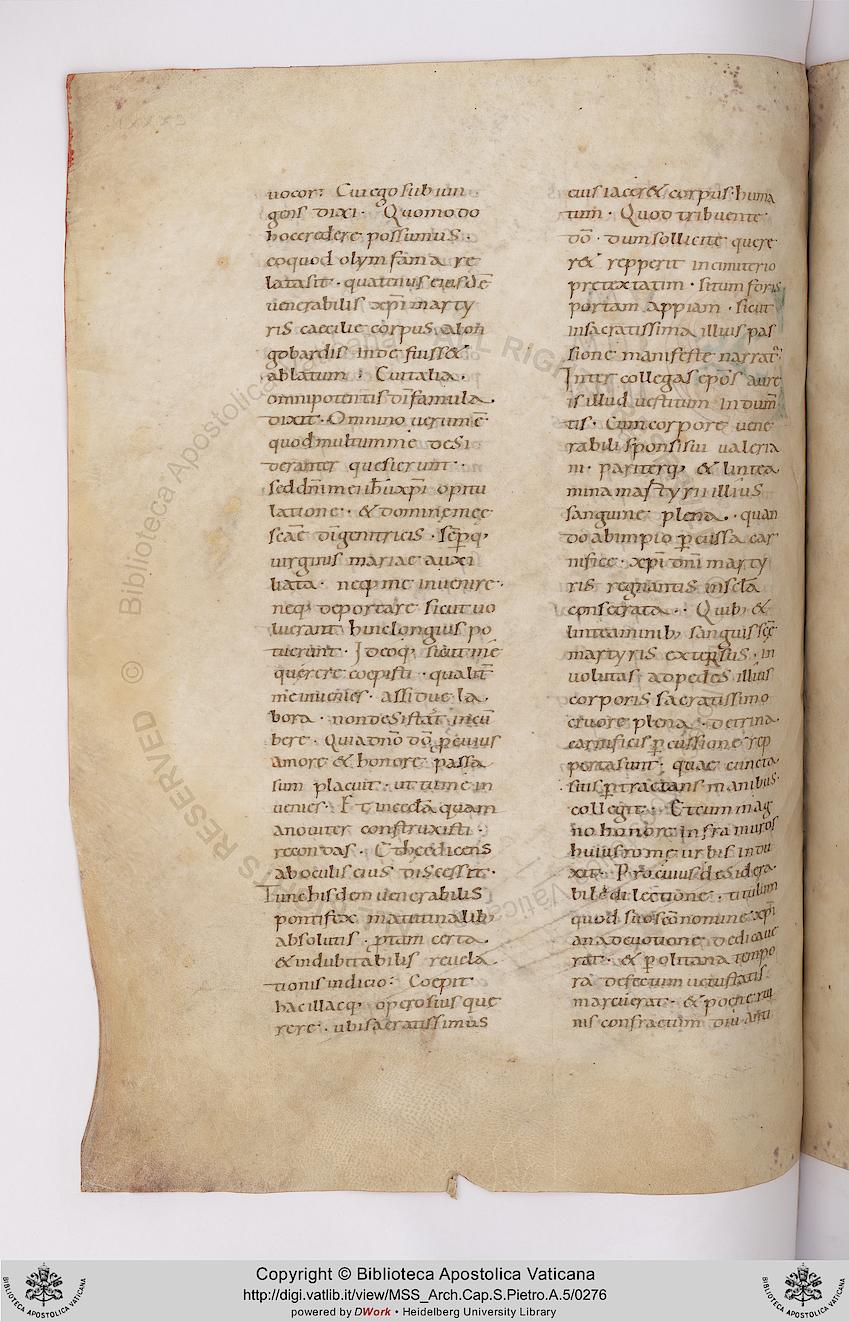 uocor: Cui ego subiun
gens dixi · Quomodo
hoc credere possumus ·
eo quod olym fama re
lata sit · quatenus eiusdē
uenerabilis xp̄i marty
ris caecilie corpus a lon
gobardis inde fuiss&
ablatum : Cui talia ·
omnipotentis dī famula ·
dixit · Omnino uerum ē ·
quod multum me desi
deranter quesierunt ·
sed dn̄i mei ih̄u xp̄i opitu
latione · & domine mee
sc̄ae dī genitricis · sēp̱q;
uirginis mariae auxi
liata · neq; me inuenire ·
neq; deportare sicut uo
luerant hinc longius po
tuerunt · Ideoq; sicut me
querere coepisti · qualit̄
me inuenies · assidue la
bora · non desistat incū
bere · Quia dn̄o dō p̱ cuius
amore & honore passa
sum placuit · ut tu me in
uenies · Et in eccl̄a quam
a nouiter construxisti ·
recondas · Et hec dicens
ab oculis eius discessit ·
Tunc hisdem uenerabilis
pontifex matutinalib;
absolutis · p̱ tam certa
& indubitabilis reuela
tionis indicio : Coepit
hac illacq; operosius que
rere · ubi sacratissimus
eius iacer& corpus huma
tum · Quod tribuente
dō · dum sollicite quere
r& repperit in cimiterio
pretextatim · situm foris
portam appiam · sicut
in sacratissima illius pas
sione manifeste narrat̄ :
Inter collegas ep̄os aure
is illud uestitum indum̄
tis · Cum corpore uene
rabili sponsi sui ualeria
ni · pariterq; & lintea
mina martyrii illius
sanguine plena · quan
do ab impio p̱cussa car
nifice · xp̄i dn̄i marty
ris regnantis in sc̄la
consecrata · Quib; &
linteaminib; sanguis sc̄e
martyris extersus · in
uolutas ad pedes illius
corporis sacratissimo
cruore plena · de trina
carnificis p̱cussione rep
perta sunt · quae cuncta
suis p̱tractans manibus ·
collegit · Et cum mag
no honore infra muros
huius rome urbis indu
xit · Pro cuius desidera
bile dilectione · titulum
quod suo sc̄o nomine xp̄i
ana deuotione dedicaue
rat · & p̱ olitana tenpo
ra defectum uetustatis
marcuerat · & po&ne rui
nis confractum diu anti
Copyright © Biblioteca Apostolica Vaticana
http://digi.vatlib.it/view/MSS_Arch.Cap.S.Pietro.A.5/0276
powered by DWork • Heidelberg University Library